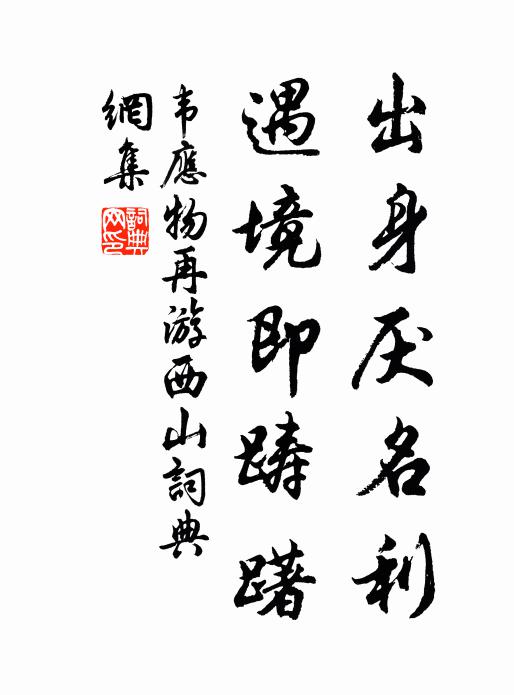 出身厌名利
遇境即踌躇
韦應物再游西山詞典
網集
詞典
网印